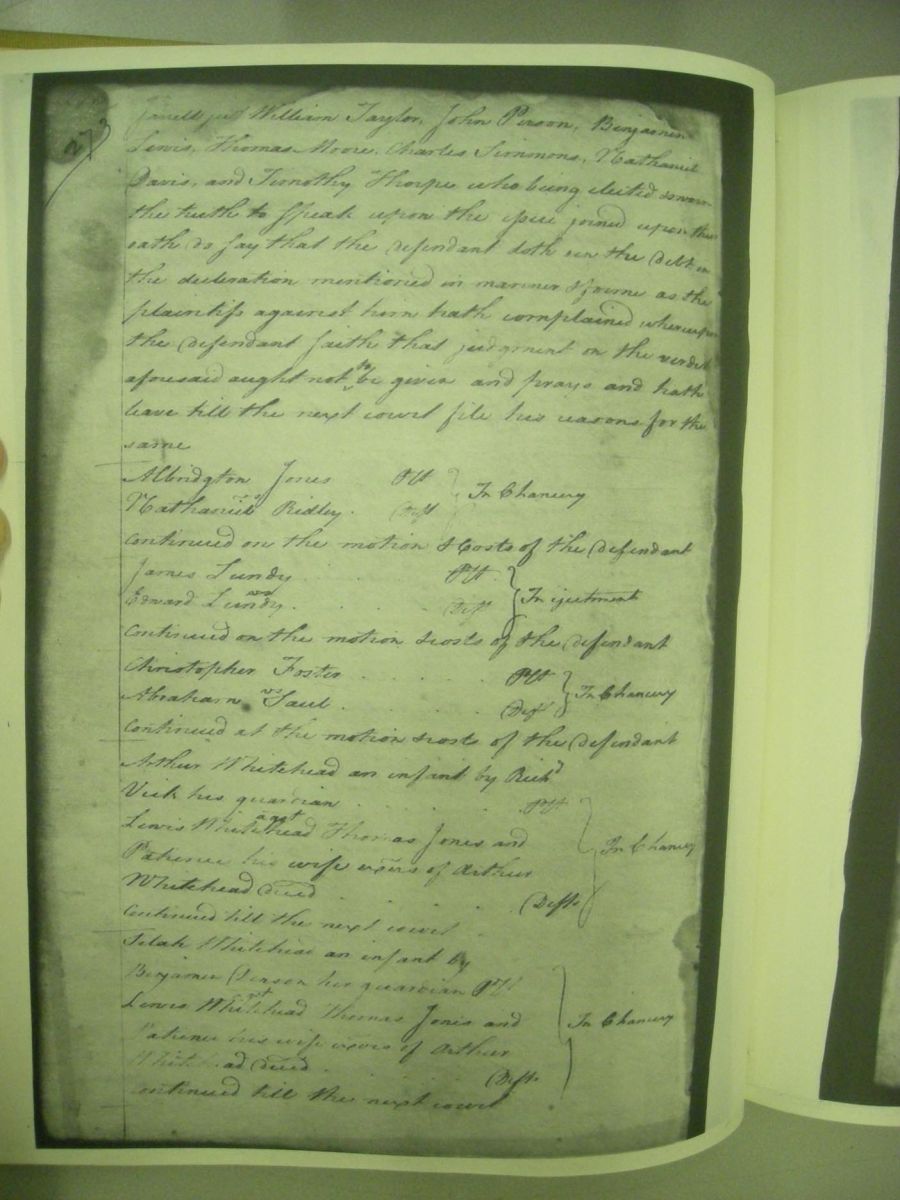 273
William Taylor, John Person, Benjamin
Lewis, Thomas Moore, Charles Simmons, Nathaniel
Davis, and Timothy Thorpe who being elected sworn
the truth to speak upon the issue joined upon their
oath do say that the defendant doth owe the debt in
the declaration mentioned in manner & forme as the
plaintiff against him hath complained whereupon
the defendant saith that judgment on the verdict
aforesaid aught not to be given and prays and hath
leave till the next court file his reasons for the
same
Albridgton Jones Plt
vs In Chancery
Nathaniel Ridley. Deft
continued on the motion & Costs of the defendant
James Lundy Plt
vs In ejectment
Edward Lundy. Deft
continued on the motion & costs of the defendant
Christopher Foster Plt
vs In Chancery
Abraham Saul. Deft
continued at the motion & costs of the defendant
Arthur Whitehead an infant by Richd
Vick his guardian Plt
agst
Lewis Whitehead Thomas Jones and In Chancery
Patience his wife exors of Arthur
Whitehead deced Defts
continued till the next court
Benjamin Denson her guardian Plt
agst
Lewis Whitehead Thomas Jones and In Chancery
Patience his wife exors of Arthur
Whitehead deced. Defts
continued till the next court